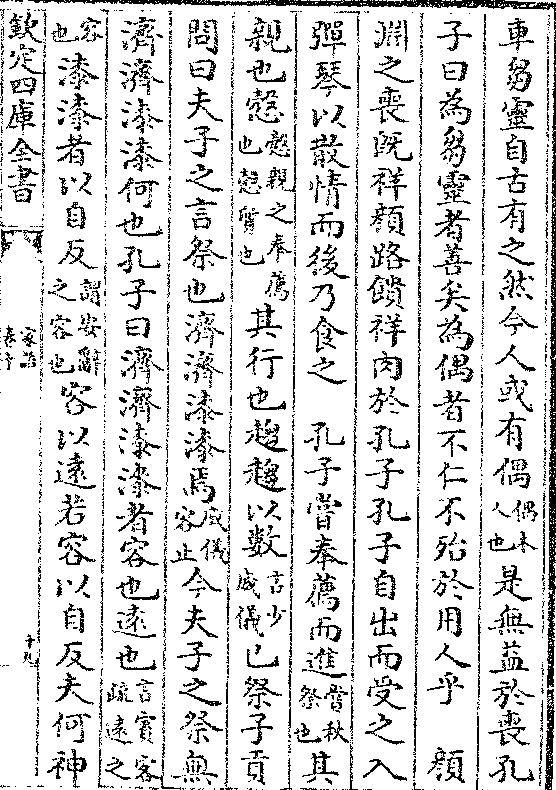 車芻靈自古有之然今人或有偶偶木人也是無益於喪孔
子曰為芻靈者善矣為偶者不仁不殆於用人乎　顔
淵之喪既祥顔路饋祥肉於孔子孔子自出而受之入
彈琴以散情而後乃食之　孔子嘗奉薦而進嘗秋祭也其
親也慤慤親之奉薦也慤質也其行也趨趨以數言少威儀已祭子貢
問曰夫子之言祭也濟濟漆漆焉威儀容止今夫子之祭無
濟濟漆漆何也孔子曰濟濟漆漆者容也遠也言賓客疏遠之
容也漆漆者以自反謂安辭之容也容以遠若容以自反夫何神
欽定四庫全書
家語
十九